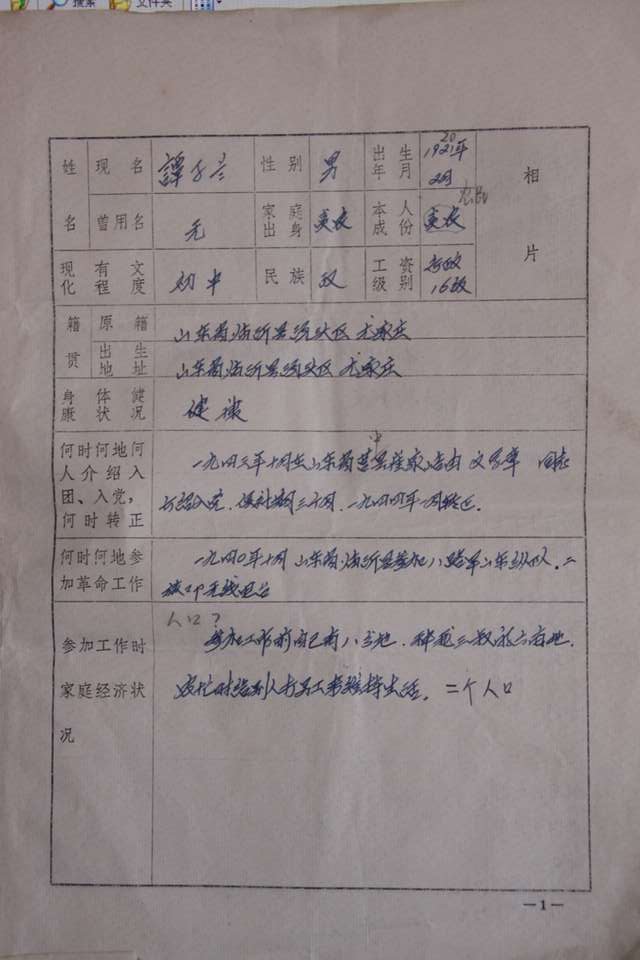 搜索 文件夹
姓名 现名 譚 性别 男 出生年月 1921年 20 2月 相片
曾用名 无 家庭出身 贫农 本人成份 贫农
现有文化程度 初中 民族 汉 工资级别 行政16级
籍贯 原籍 山东省临沂县 区 尤家庄
出生地址 山东省临沂县 区 尤家庄
身体健康状况 健康
何时何地何人介绍入团、入党,何时转正 一九四三年十月在山东省莒中县 家 由 文 同志
介绍入党,候补期三个月,一九四四年一月转正.
何时何地参加革命工作 一九四〇年十月 山东省临沂县参加八路军山东纵队.二
旅 无线电台
参加工作时家庭经济状况 人口?
参加工作前自己有八 地.种 三 地.
农忙时给别人打短工来维持生活. 二个人口
—1—